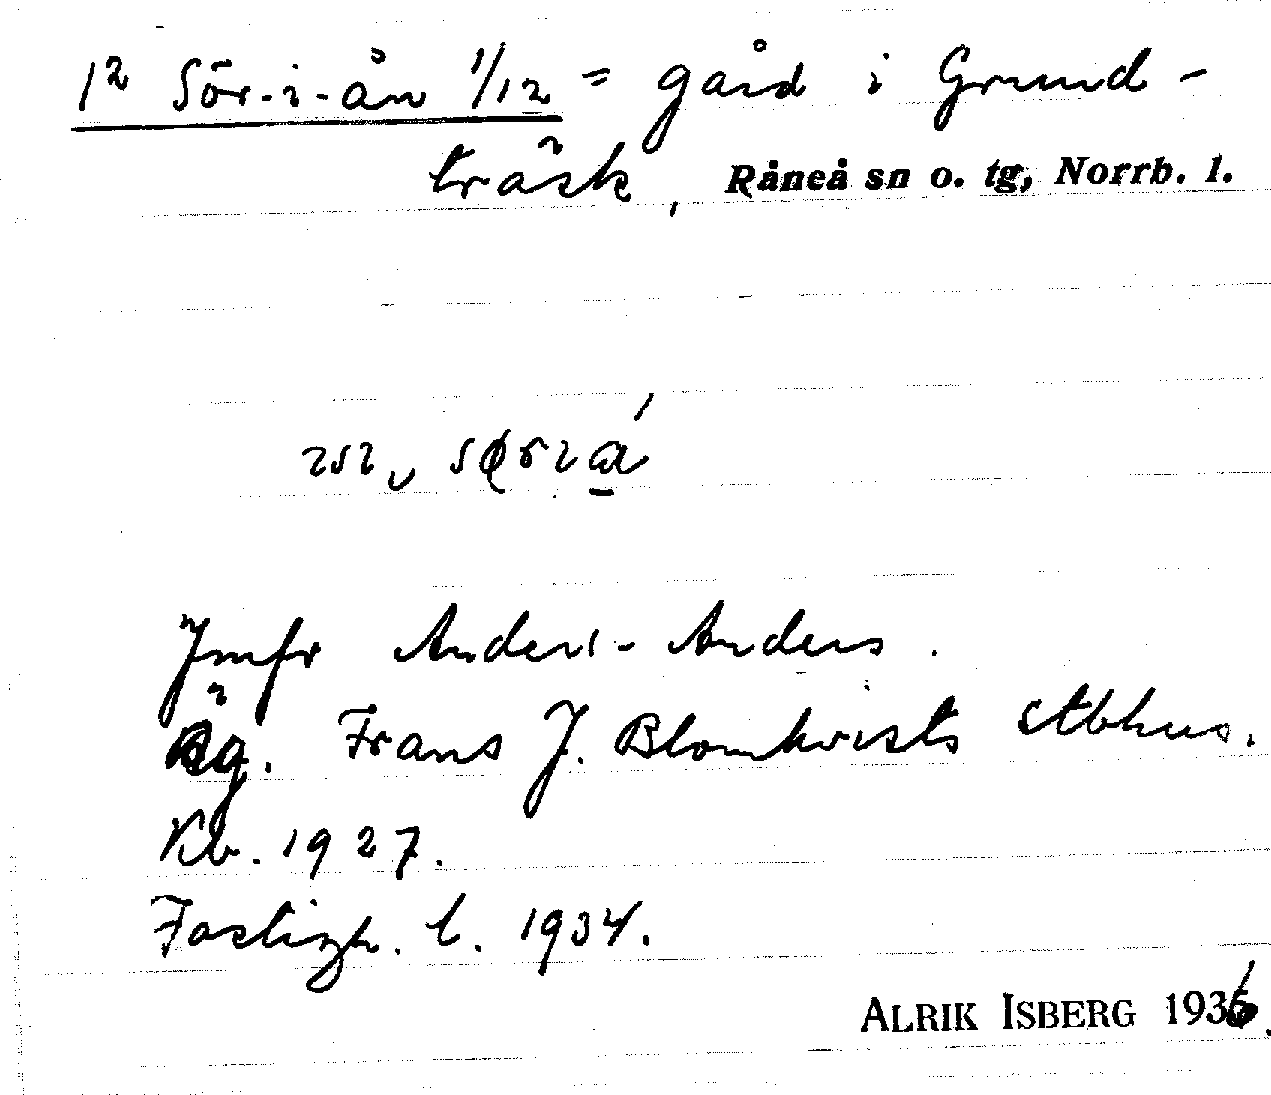 1² Sör-i-ån 1/12 = gård i Grund-
träsk, Råneå sn o. tg, Norrb. l.
Jmfr Anders-Anders.
Äg. Frans J. Blomkvists stbhus.
Kb. 1927.
Fastigh. l. 1934.
ALRIK ISBERG 1936.